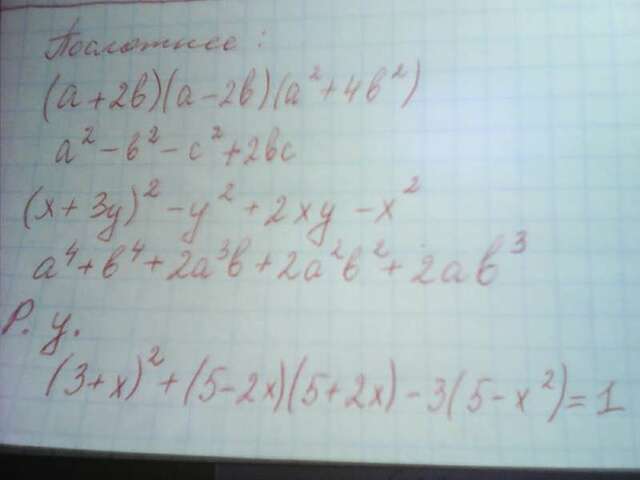 Посложнее:
(a+2b)(a-2b)(a²+4b²)
a²-b²-c²+2bc
(x+3y)²-y²+2xy-x²
a⁴+b⁴+2a³b+2a²b²+2ab³
Р.у.
(3+x)²+(5-2x)(5+2x)-3(5-x²)=1